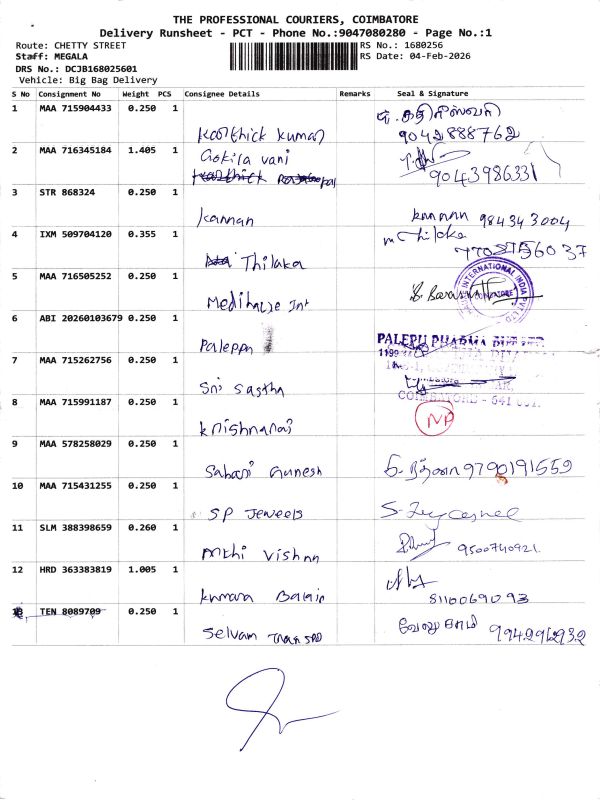 THE PROFESSIONAL COURIERS, COIMBATORE
Delivery Runsheet - PCT - Phone No.:9047080280 - Page No.:1
Route: CHETTY STREET RS No.: 1680256
Staff: MEGALA RS Date: 04-Feb-2026
DRS No.: DCJB168025601
Vehicle: Big Bag Delivery
S No Consignment No Weight PCS Consignee Details Remarks Seal & Signature
1 MAA 715904433 0.250 1
Karthick Kumar 9042888762
2 MAA 716345184 1.405 1 Gokila vani
9043986331
3 STR 868324 0.250 1
Kannan Kannan 984343004
4 IXM 509704120 0.355 1 Thilaka
Thilaka
5 MAA 716505252 0.250 1
INTERNATIONAL INDIA PVT LTD
COIMBATORE
6 ABI 20260103679 0.250 1
PALEPU PHARMA PVT LTD
7 MAA 715262756 0.250 1
Sri Sastha
COIMBATORE - 641 001.
8 MAA 715991187 0.250 1
Krishnaraj NP
9 MAA 578258029 0.250 1
Sabari Gunesh 9790191559
10 MAA 715431255 0.250 1
SP Jewels
11 SLM 388398659 0.260 1
Vishnu 9500740921
12 HRD 363383819 1.005 1
Kumara 8110069093
TEN 8089709 0.250 1
Selvam 9942962932